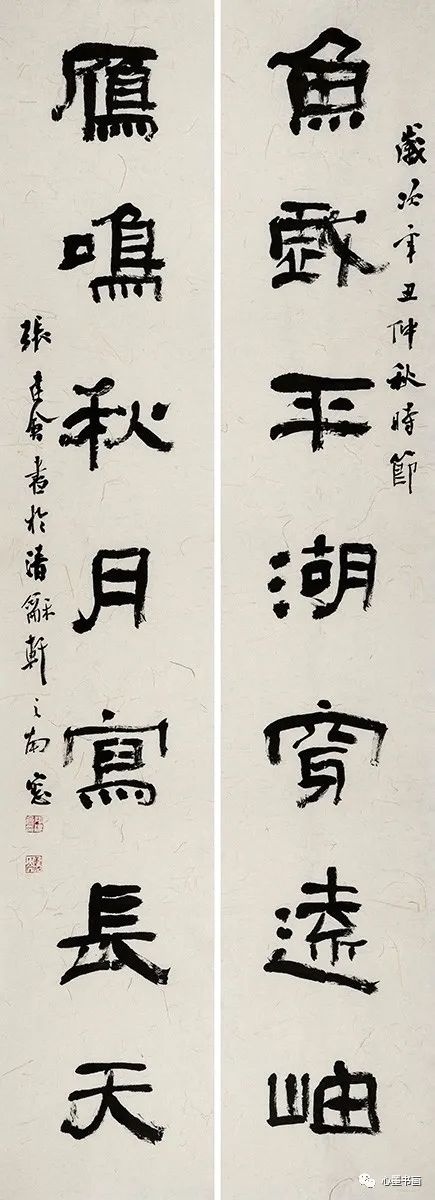 歲次辛丑仲秋時節
魚戲平湖穿遠岫
鴈鳴秋月寫長天
張建會書於清龢軒之南窓
心垂书画